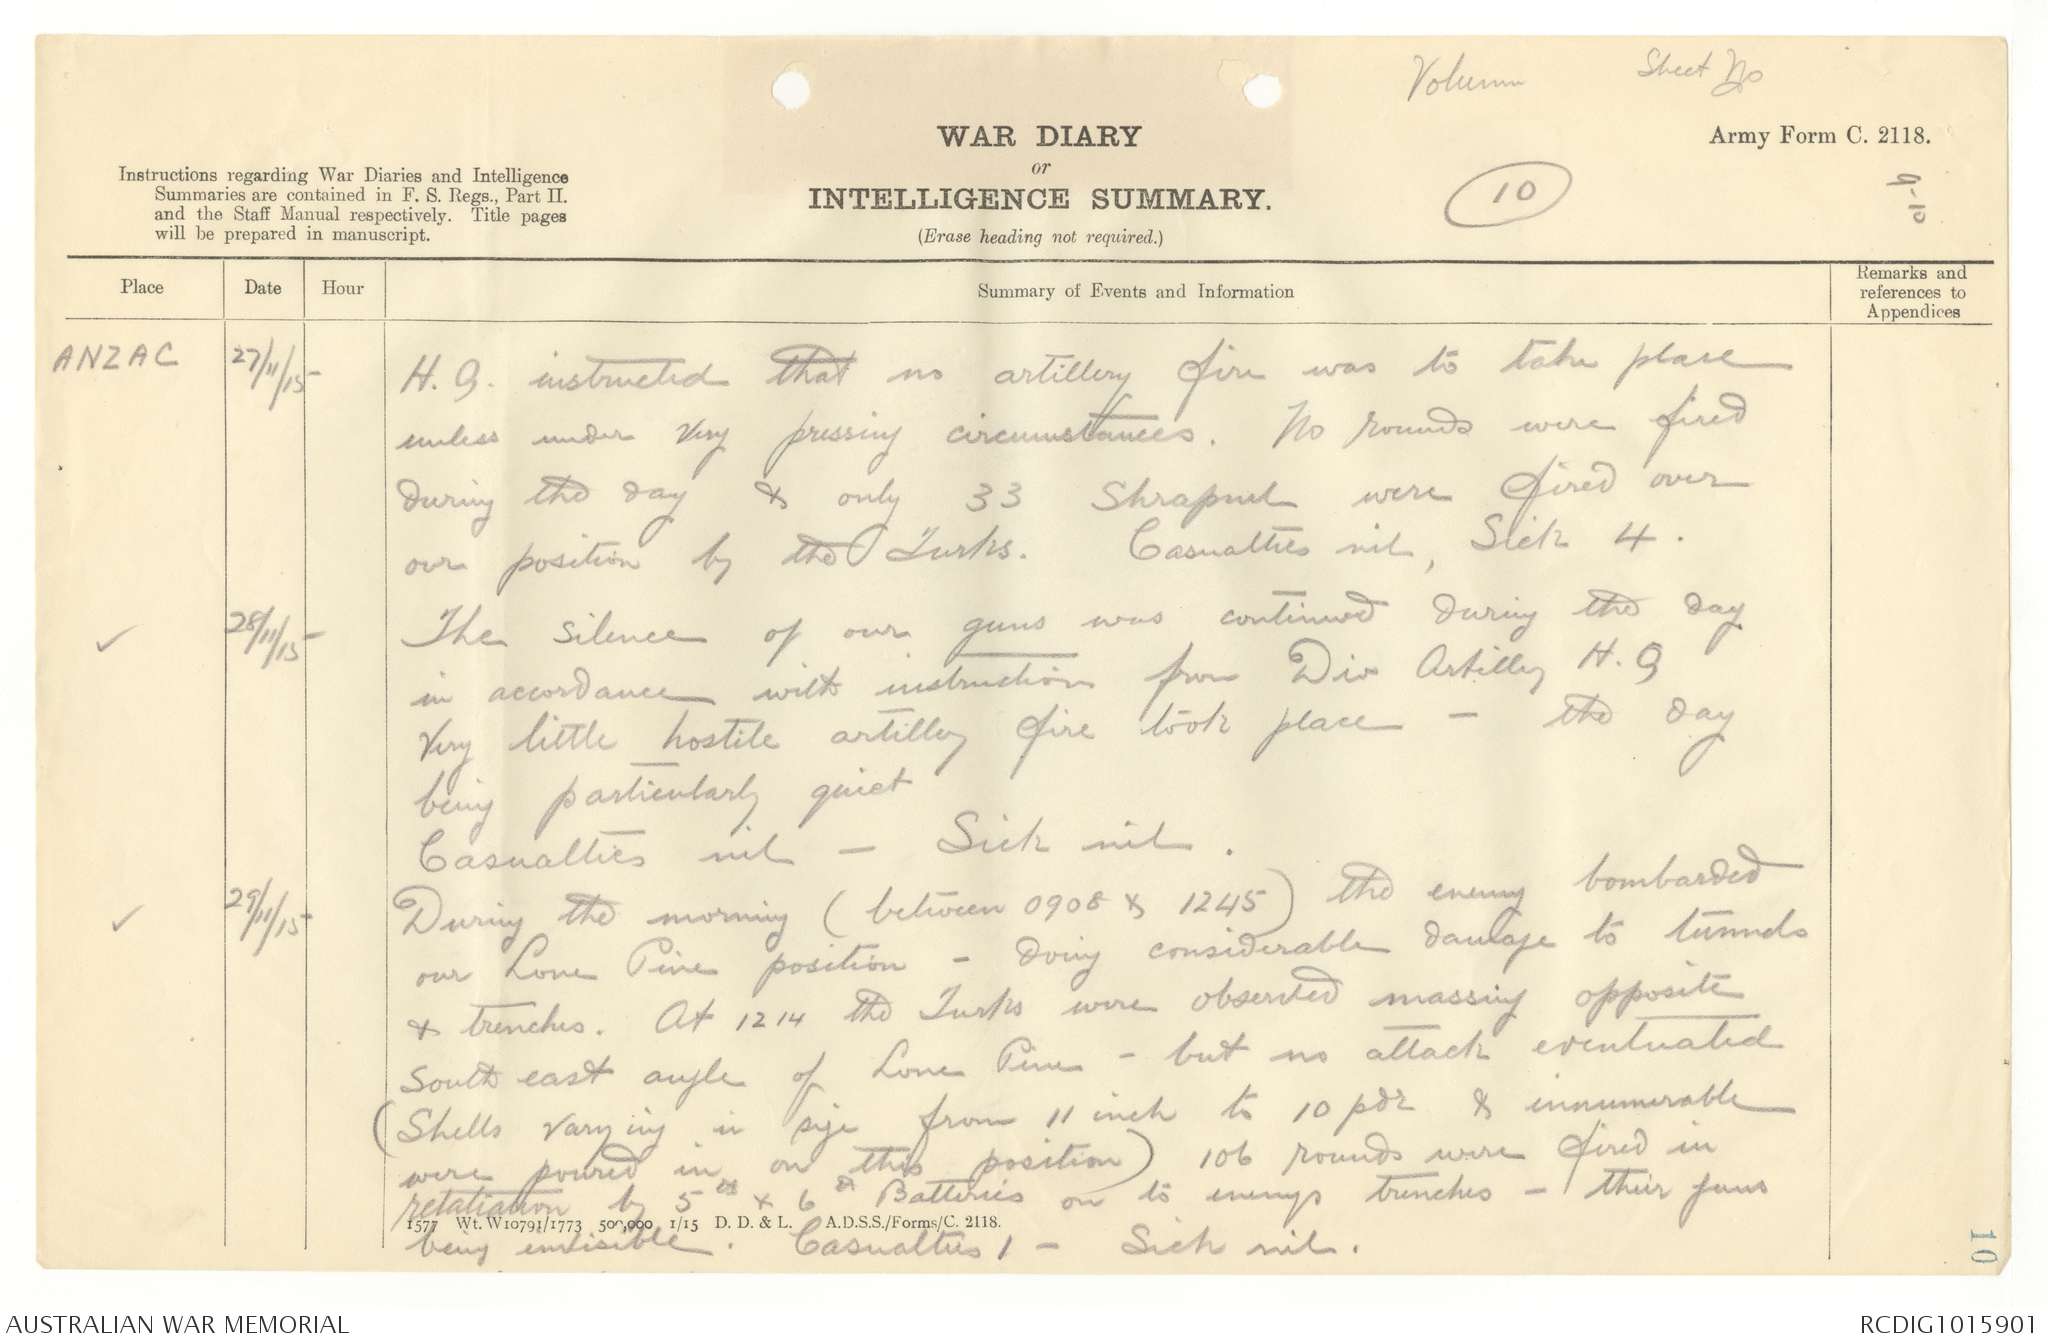 Volumn Sheet No
WAR DIARY
or
INTELLIGENCE SUMMARY.
(Erase heading not required.)
Army Form C. 2118.
10
9-10
Instructions regarding War Diaries and Intelligence
Summaries are contained in F. S. Regs., Part II.
and the Staff Manual respectively. Title pages
will be prepared in manuscript.
Place Date Hour Summary of Events and Information Remarks and references to Appendices
ANZAC 27/11/15 H.Q. instructed that no artillery fire was to take place
unless under very pressing circumstances. No rounds were fired
during the day & only 33 Shrapnel were fired over
our position by the Turks. Casualties nil, Sick 4.
✓ 28/11/15 The silence of our guns was continued during the day
in accordance with instructions from Div Artillery H.Q
Very little hostile artillery fire took place - the day
being particularly quiet
Casualties nil - Sick nil.
✓ 29/11/15 During the morning (between 0908 & 1245) the enemy bombarded
our Lone Pine position - doing considerable damage to tunnels
& trenches. At 1214 the Turks were observed massing opposite
South east angle of Lone Pine - but no attack eventuated
(Shells varying in size from 11 inch to 10 pdr & innumerable
were poured in on this position) 106 rounds were fired in
retatiation by 5th & 6th Batteries on to enemys trenches - their guns
being invisible. Casualties 1 - Sick nil.
1577 Wt. W10791/1773 500,000 1/15 D. D. & L. A.D.S.S./Forms/C. 2118.
10
AUSTRALIAN WAR MEMORIAL RCDIG1015901